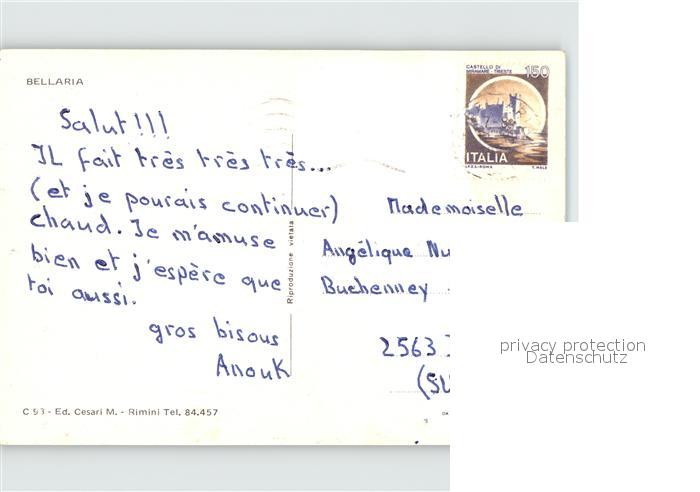 BELLARIA
CASTELLO DI
MIRAMARE - TRIESTE
150
ITALIA
Salut!!!
IL fait très très très...
(et je pourais continuer)
chaud. Je m'amuse
bien et j'espère que
toi aussi.
gros bisous
Anouk
Riproduzione vietata
Mademoiselle
Angélique Nu
Buchenney
2563
(SU
privacy protection
Datenschutz
C 93 - Ed. Cesari M. - Rimini Tel. 84.457